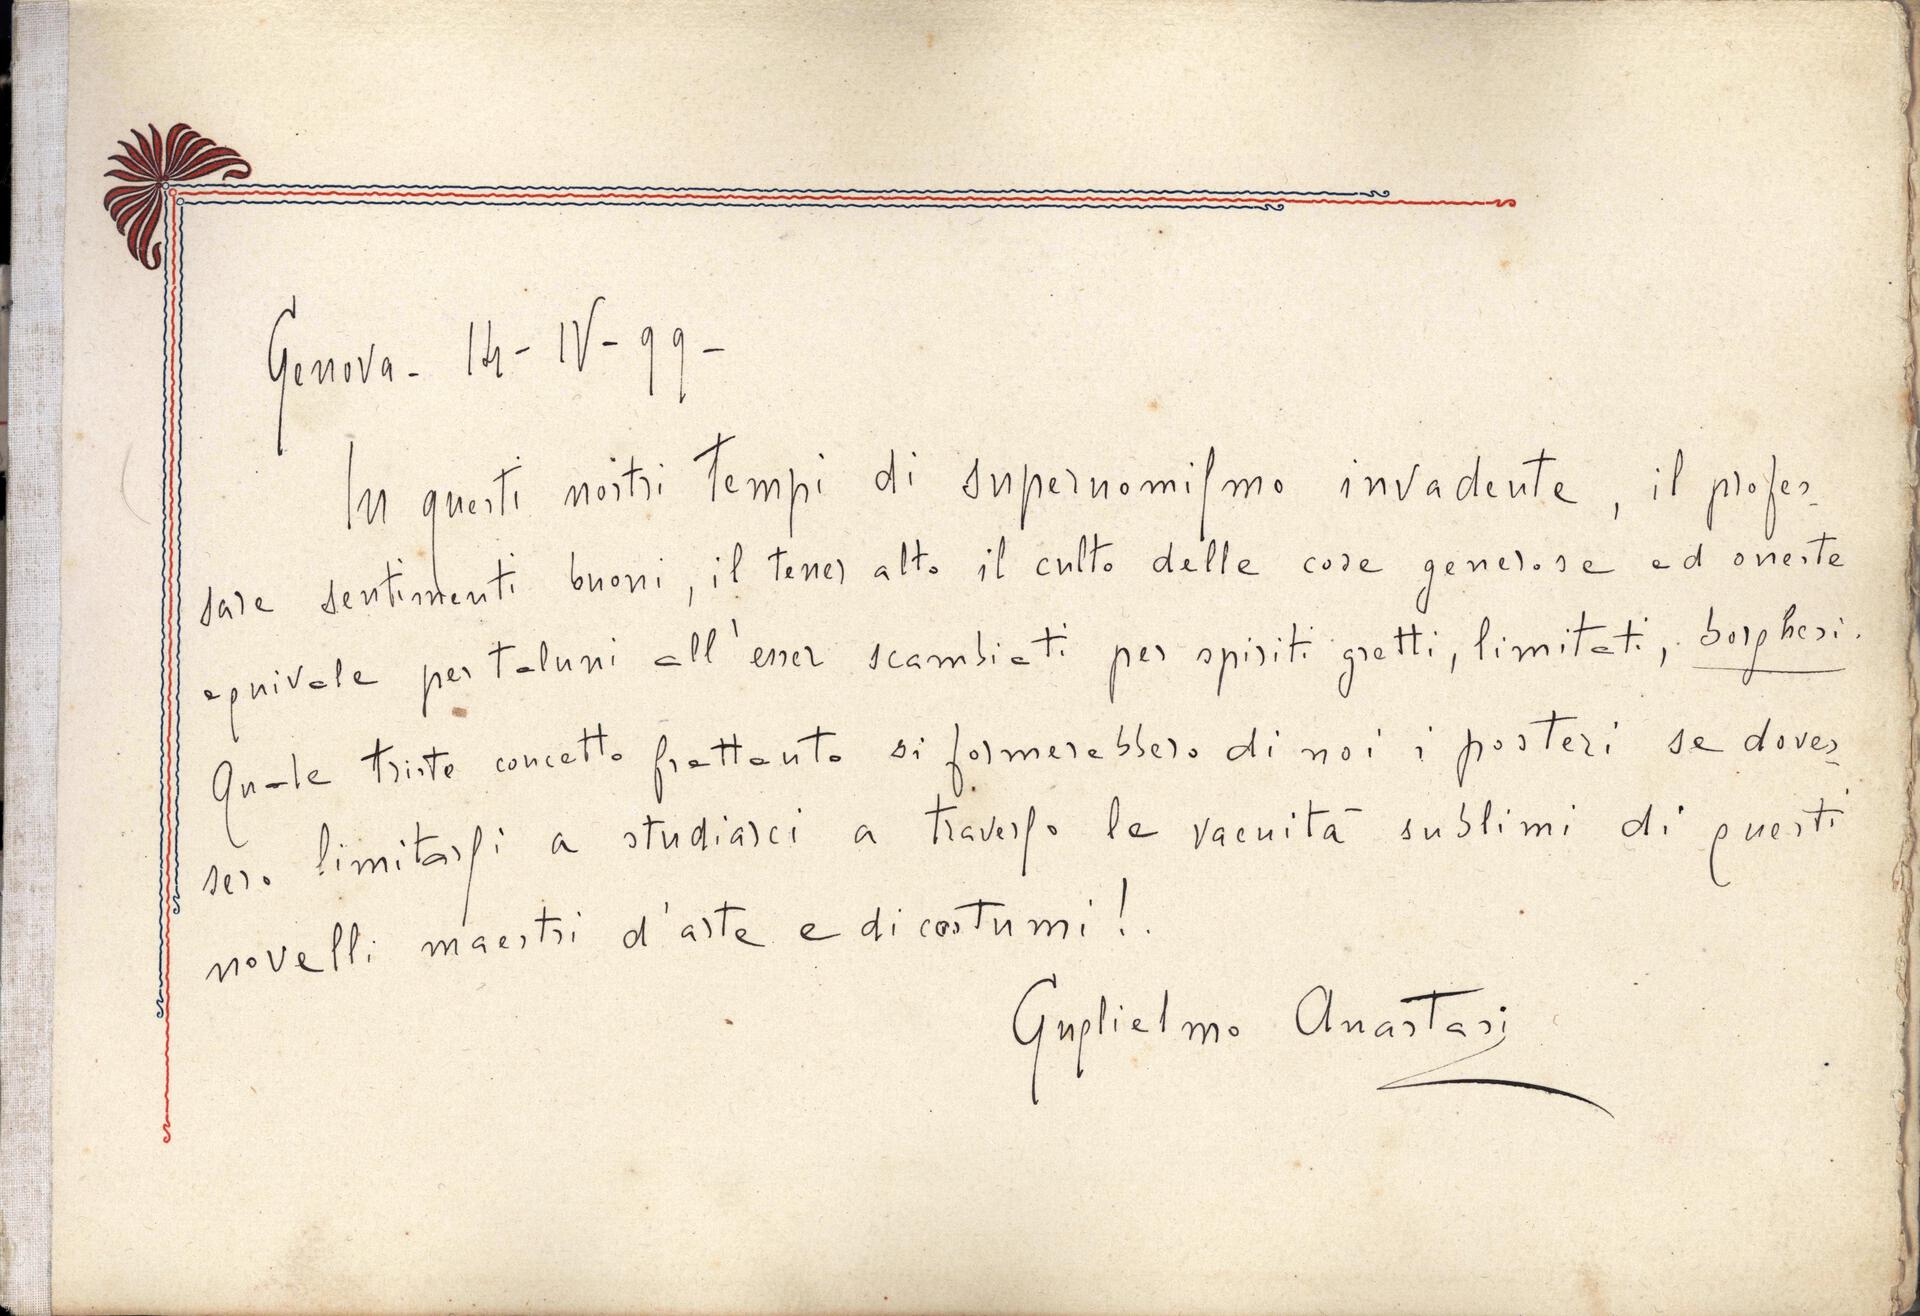 Genova - 14 - IV - 99 -
In questi nostri tempi di supernomismo invadente, il profes-
sare sentimenti buoni, il tener alto il culto delle cose generose ed oneste
equivale per taluni all'esser scambiati per spiriti gretti, limitati, borghesi.
Quale triste concetto frattanto si formerebbero di noi i posteri se doves-
sero limitarsi a studiarci a traverso le vacuità sublimi di questi
novelli maestri d'arte e di costumi!.
Guglielmo Anastasi